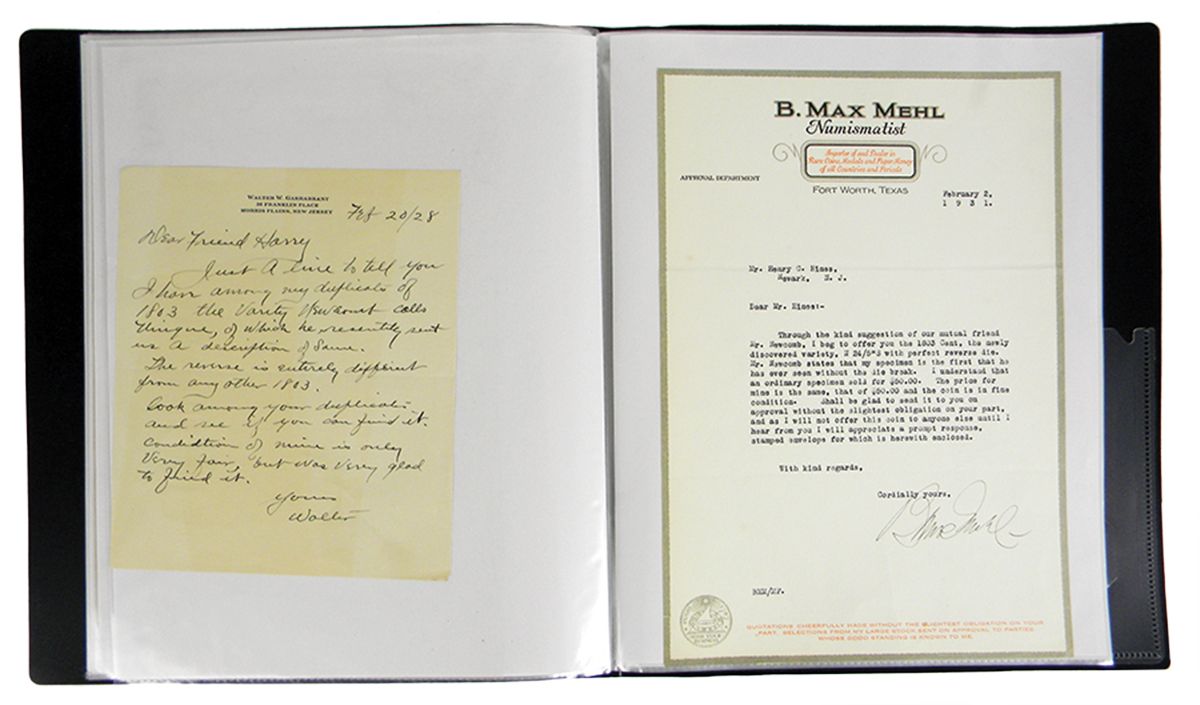 WALTER W. GARRABRANT
35 FRANKLIN PLACE
MORRIS PLAINS, NEW JERSEY
Feb 20/28
Dear Friend Harry
Just a line to tell you
I have among my duplicats of
1803 the Varity Newcomb calls
Unique, of which he resently sent
us a description of same.
The reverse is entirely different
from any other 1803.
Look among your duplicats
and see if you can find it.
Condidtion of mine is only
Very fair, but was very glad
to find it.
Yours
Walter
B. MAX MEHL
Numismatist
Importer of and Dealer in
Rare Coins, Medals and Paper Money
of all Countries and Periods
APPROVAL DEPARTMENT
FORT WORTH, TEXAS
February 2,
1 9 3 1.
Mr. Henry C. Hines,
Newark, N. J.
Dear Mr. Hines:-
Through the kind suggestion of our mutual friend
Mr. Newcomb, I beg to offer you the 1803 Cent, the newly
discovered variety, N 24/5*3 with perfect reverse die.
Mr. Newcomb states that my specimen is the first that he
has ever seen without the die break. I understand that
an ordinary specimen sold for $50.00. The price for
mine is the same, that of $50.00 and the coin is in fine
condition. Shall be glad to send it to you on
approval without the slightest obligation on your part,
and as I will not offer this coin to anyone else until I
hear from you I will appreciate a prompt response,
stamped envelope for which is herewith enclosed.
With kind regards,
Cordially yours,
B Max Mehl
BMM/MF.
QUOTATIONS CHEERFULLY MADE WITHOUT THE SLIGHTEST OBLIGATION ON YOUR
PART. SELECTIONS FROM MY LARGE STOCK SENT ON APPROVAL TO PARTIES
WHOSE GOOD STANDING IS KNOWN TO ME.